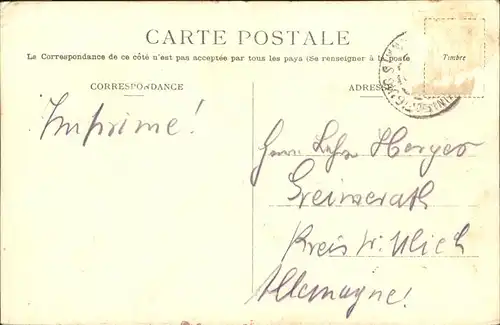 CARTE POSTALE
Le Correspondance de ce côté n'est pas acceptée par tous les pays (Se renseigner à la poste
CORRESPONDANCE
ADRES
Timbre
Imprimé!
Herrn Herges
Greimerath
Kreis Wittlich
Allemagne!